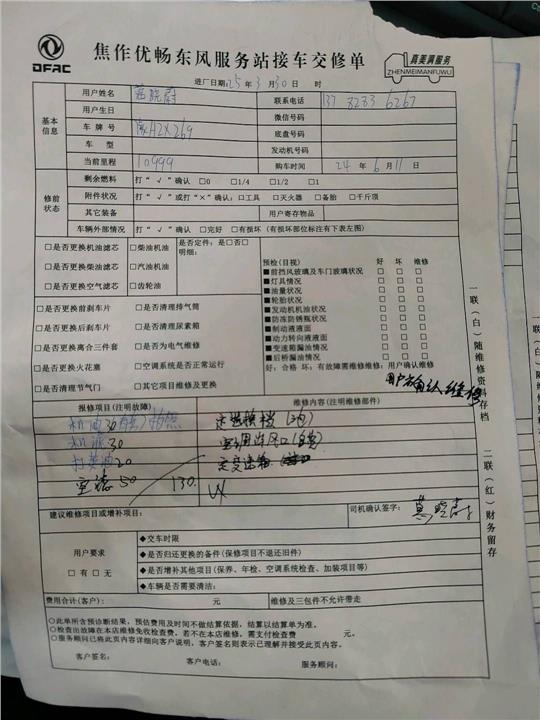 DFAC
焦作优畅东风服务站接车交修单
真美满服务
ZHENMEIMANFUWU
进厂日期:25年3月30日 时
基本信息
用户姓名 联系电话 137 8233 6267
用户生日 微信号码
车牌号 豫A2X269 底盘号码
车型 发动机号码
当前里程 10999 购车时间 24年6月11日
修前状态
剩余燃料 打“√”确认 □0 □1/4 □1/2 □1
附件状况 打“√”或打“×”确认:□工具 □灭火器 □备胎 □千斤顶
其它装备 用户寄存物品
车辆外部情况 打“√”确认 □完好 □有损坏(有损坏部位标注有下表左图)
□是否更换机油滤芯 □柴油机油 是否定件:是□否□
明细:
□是否更换柴油滤芯 □汽油机油
□是否更换空气滤芯 □齿轮油
□是否更换前刹车片 □是否清理排气筒
□是否更换后刹车片 □是否清理尿素箱
□是否更换离合三件套 □是否为电气维修
□是否更换火花塞 □空调系统是否正常运行
□是否清理节气门 □其它项目维修及更换
预检(目视) 好 坏 维修
■前挡风玻璃及车门玻璃状况 □ □ □
■灯具情况 □ □ □
■油量状况 □ □ □
■轮胎状况 □ □ □
■发动机机油状况 □ □ □
■防冻防锈瓶状况 □ □ □
■制动液液面 □ □ □
■动力转向液液面 □ □ □
■变速箱漏油情况 □ □ □
■后桥漏油情况 □ □ □
好:合格 坏:有故障需维修维修:用户确认维修
用户确认维修
报修项目(注明故障) 维修内容(注明维修部件)
机油30
机滤30
打黄油20
空滤50 130.
建议维修项目或增补项目:
司机确认签字:
用户要求
□有□无
◆交车时限
◆是否归还更换的备件(保修项目不退还旧件)
◆是否增补其他项目(保养、年检、空调系统检查、加装项目等)
◆车辆是否需要清洁:
费用合计(客户): 元 维修及三包件不允许带走
○此单所含预诊断结果,预估费用及时间不做结算依据,结算以结算单为准。
○检查出故障在本店维修免收检查费,若不在本店维修,需支付检查费 元。
○服务顾问已将此页内容详细向客户说明,客户签名则表示已理解并接受此页内容。
客户签名: 客户电话: 服务顾问:
一联(白)随维修资料存档
二联(红)财务留存